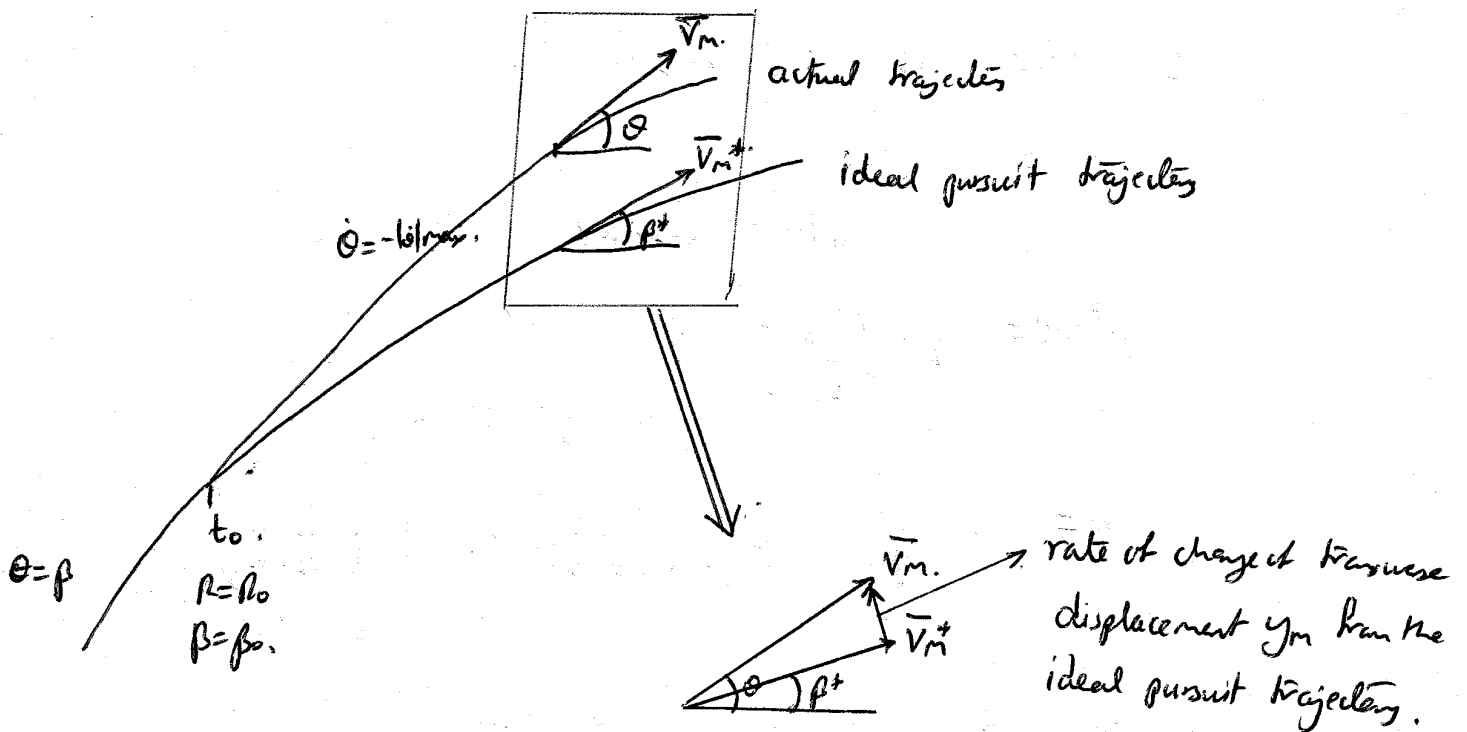 V̄m.
actual trajectory
θ
V̄m*.
ideal pursuit trajectory
β*
θ̇ = -|θ̇|max.
t₀.
θ=β
R=R₀
β=β₀.
V̄m.
rate of change of transverse
displacement ym from the
V̄m*
θ
β*
ideal pursuit trajectory.